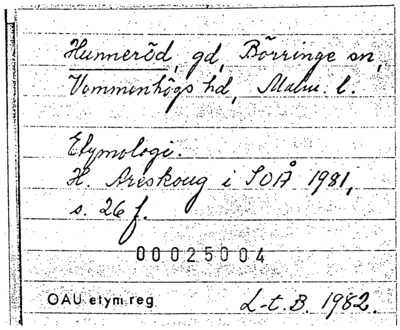 Hunneröd, gd, Börringe sn,
Vemmenhögs hd, Malm. l.
Etymologi.
H. Areskoug i SOÅ 1981,
s. 26 f.
00025004
OAU etym reg L-t. B. 1982.